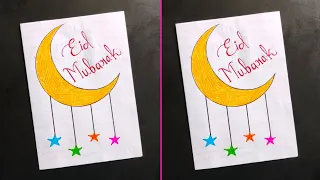 Eid
Mubarak
Eid
Mubarak